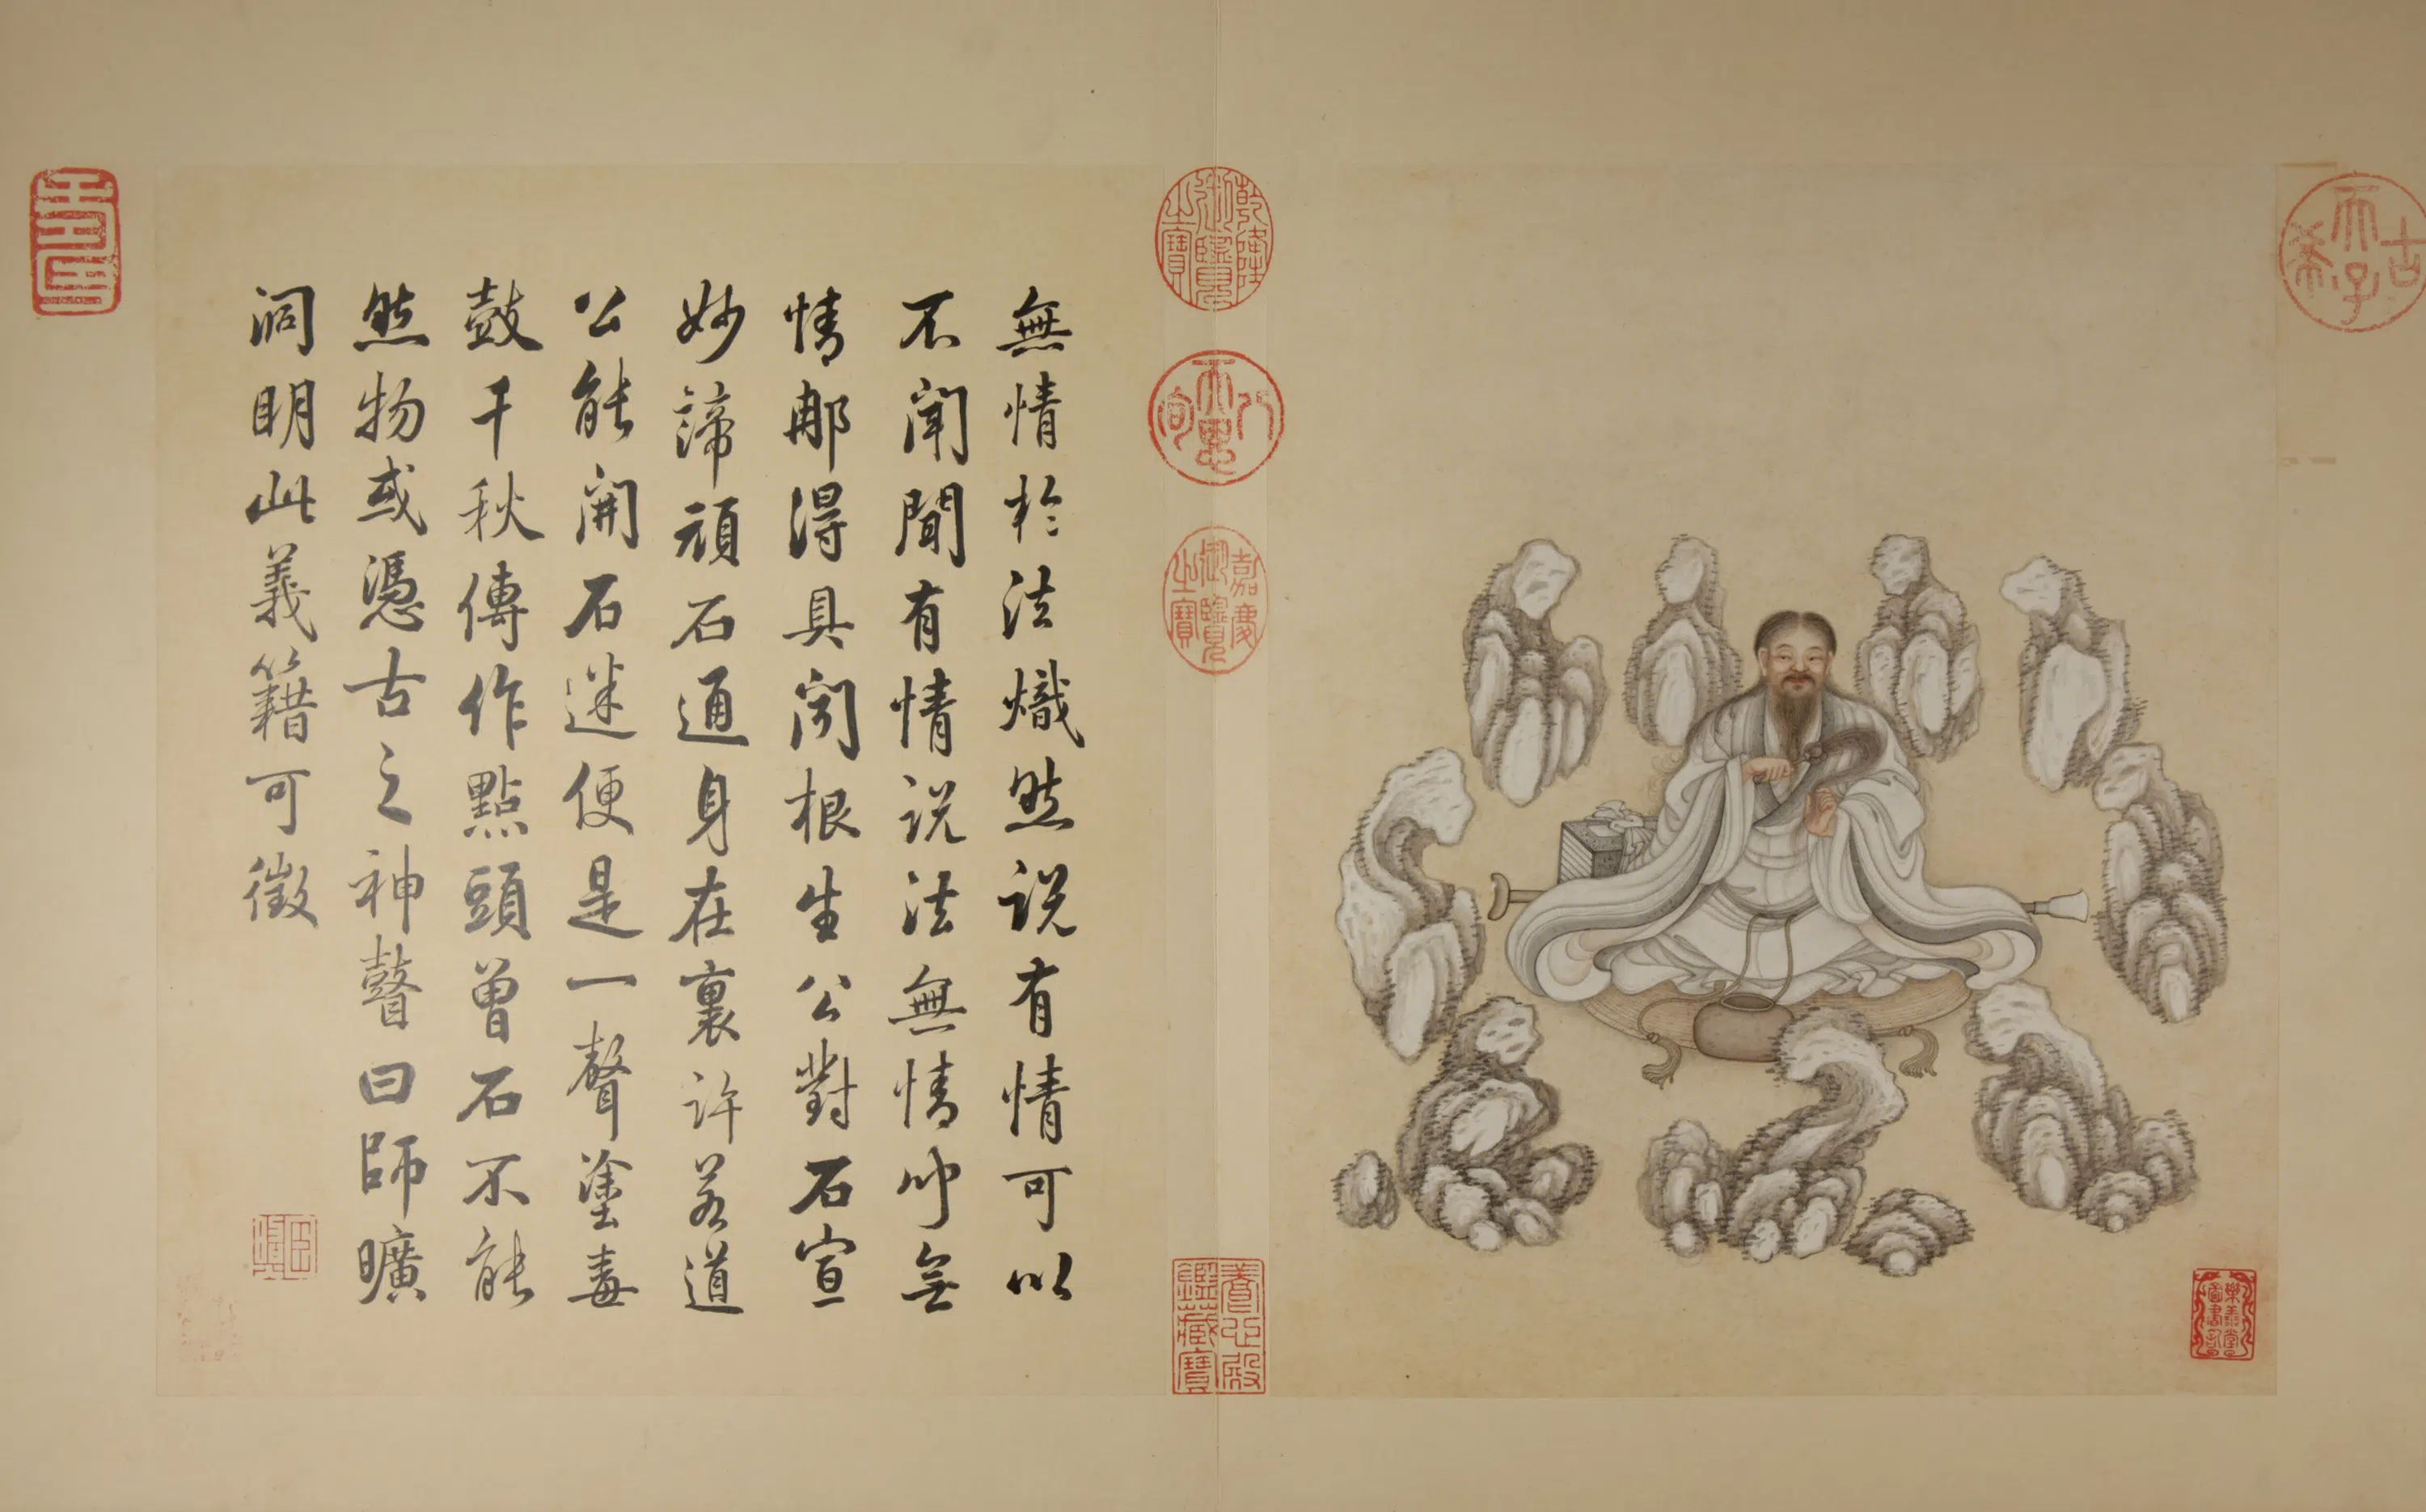 無情於法熾然說有情可以
不聞聞有情說法無情聽無
情耶得具闻根生公對石宣
妙諦頑石通身在裏許若道
公能開石迷便是一聲塗毒
鼓千秋傳作點頭曾石不能
然物或憑古之神瞽曰師曠
洞明此義籍可徵
乾隆御覽之寶
八徵耄念
嘉慶御覽之寶
古希天子
壽
養心殿鑑藏寶
樂善堂圖書記